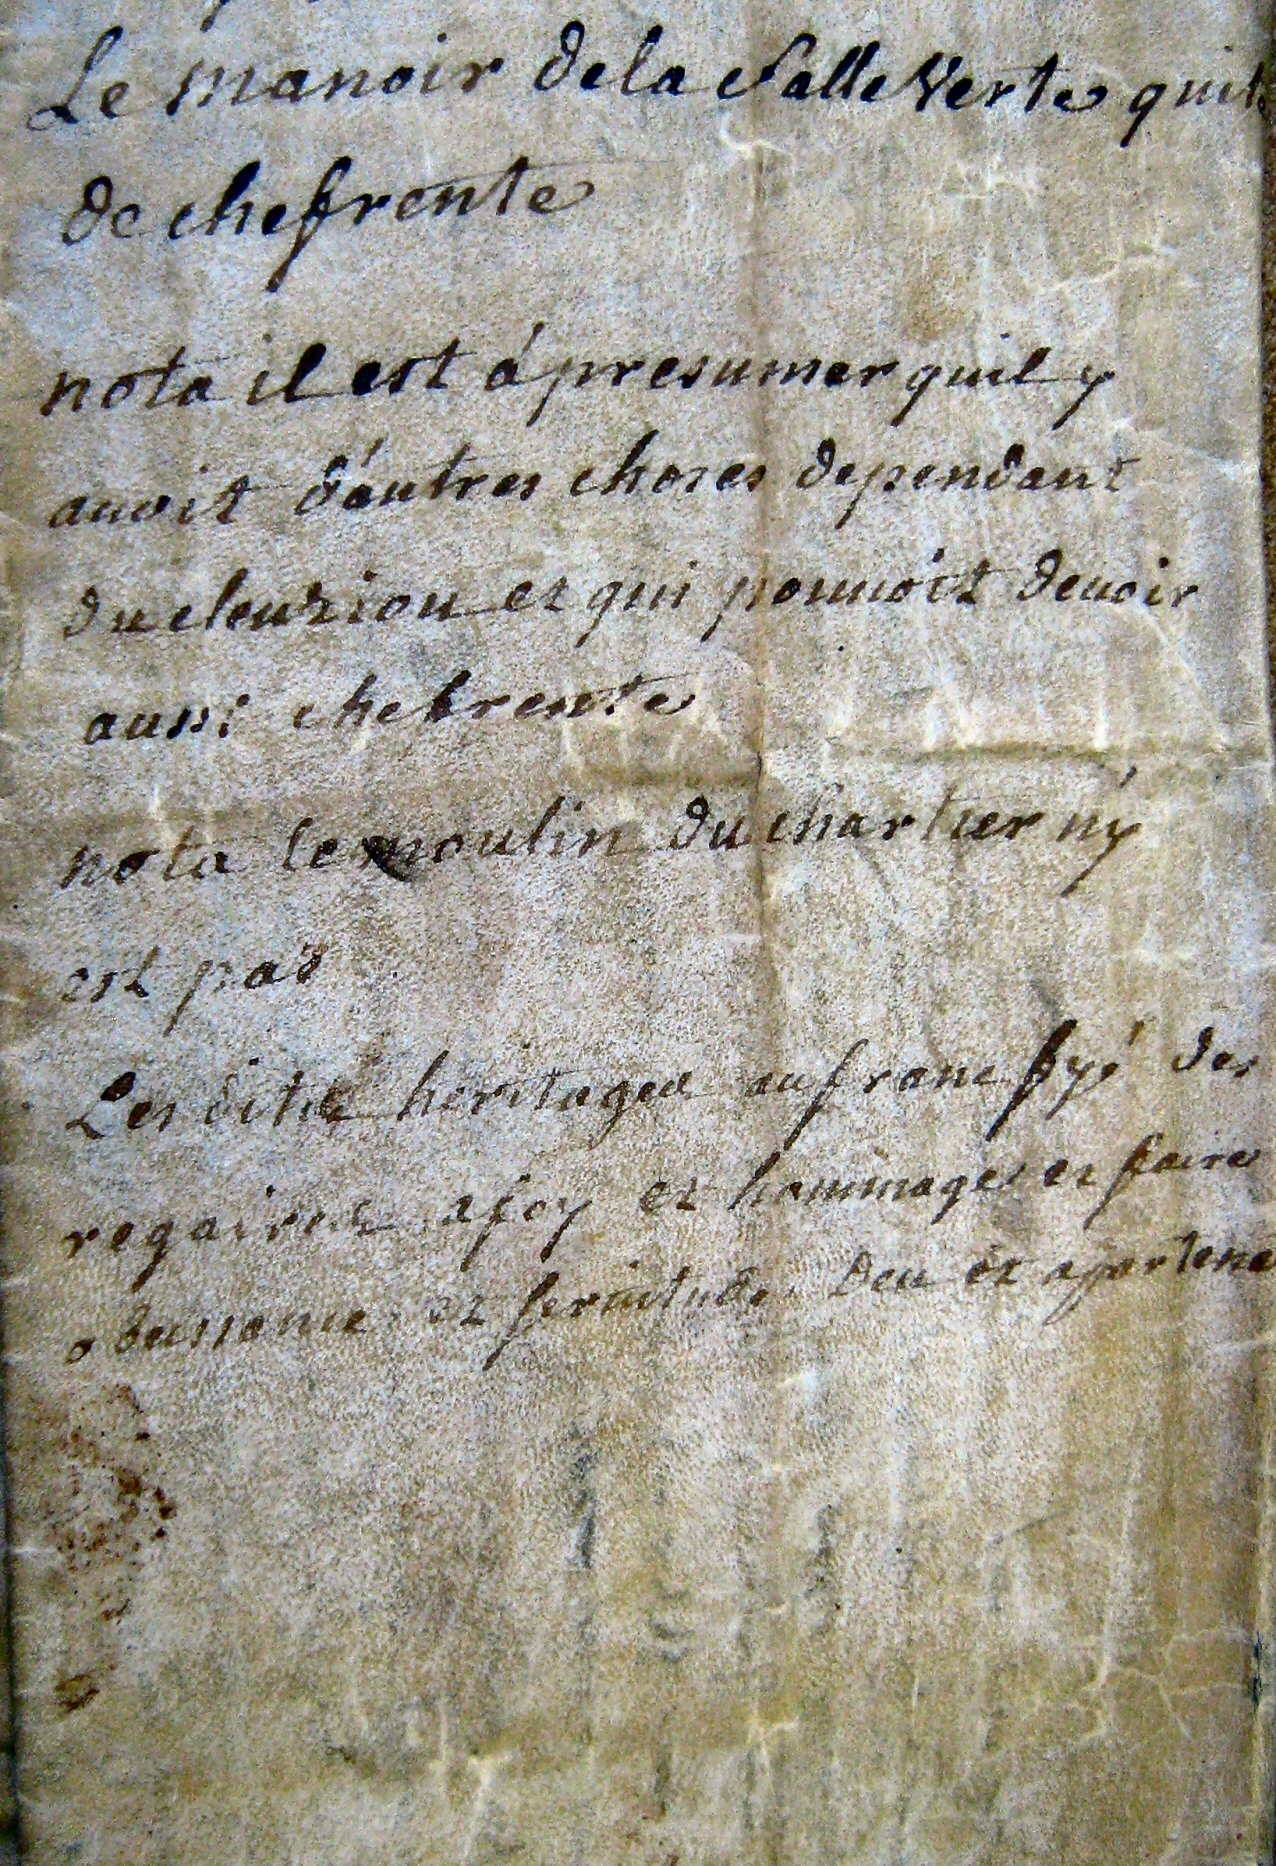 Le manoir de la Salle Verte quit
de chefrente
nota il est á presumer quil y
auoit d'autres choses dependant
du cleuziou et qui pouuoit deuoir
aussi chefrente
nota le moulin du chartier n'y
est pas
Les dits heritages au franc fyé des
regaires a foy et hommage et faire
obeissance et seruitude deu et apartena